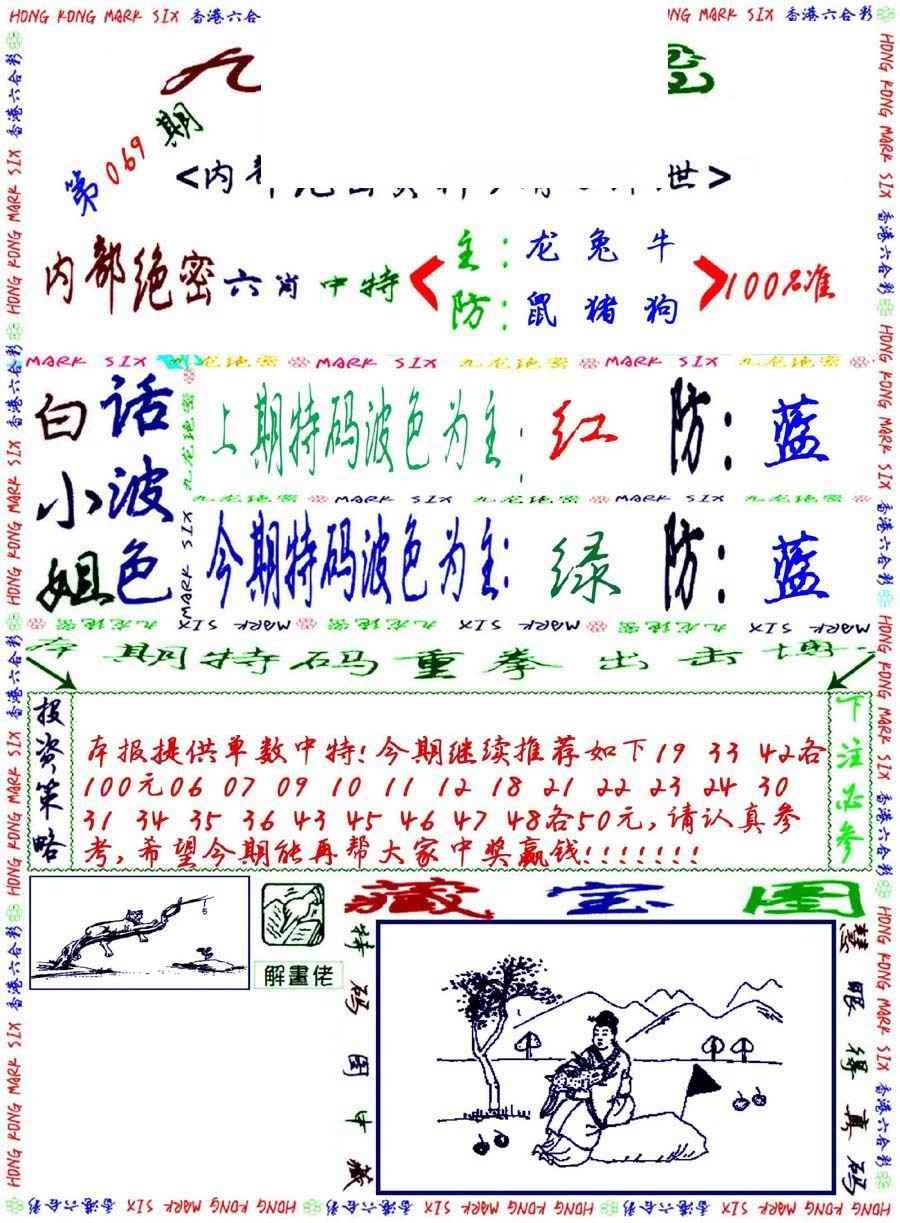 HONG KONG MARK SIX 香港六合彩
第069期
内部绝密六肖中特
主:龙兔牛
防:鼠猪狗
100%准
MARK SIX 九龙绝密 MARK SIX 九龙绝密 MARK SIX 九龙绝密
白话小姐
波色
上期特码波色为主:红 防:蓝
九龙绝密 MARK SIX 九龙绝密 MARK SIX
今期特码波色为主:绿 防:蓝
MARK SIX 九龙绝密 MARK SIX 九龙绝密 MARK SIX 九龙绝密
本期特码重拳出击
投资策略
本报提供单数中特!今期继续推荐如下19 33 42各
100元06 07 09 10 11 12 18 21 22 23 24 30
31 34 35 36 43 45 46 47 48各50元,请认真参
考,希望今期能再帮大家中奖赢钱!!!!!!!
下注必参
解畫佬
藏宝图
特码图中藏
慧眼得真码
HONG KONG MARK SIX 香港六合彩